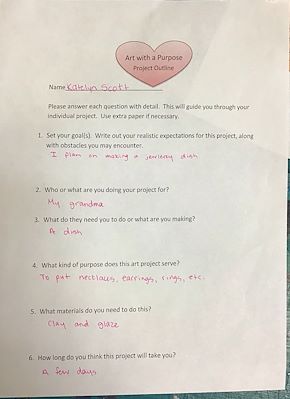 Art with a Purpose
Project Outline
Name Katelyn Scott
Please answer each question with detail. This will guide you through your
individual project. Use extra paper if necessary.
1. Set your goal(s). Write out your realistic expectations for this project, along
with obstacles you may encounter.
I plan on making a jewlerey dish
2. Who or what are you doing your project for?
My grandma
3. What do they need you to do or what are you making?
A dish
4. What kind of purpose does this art project serve?
To put necklaces, earrings, rings, etc.
5. What materials do you need to do this?
Clay and glaze
6. How long do you think this project will take you?
a few days